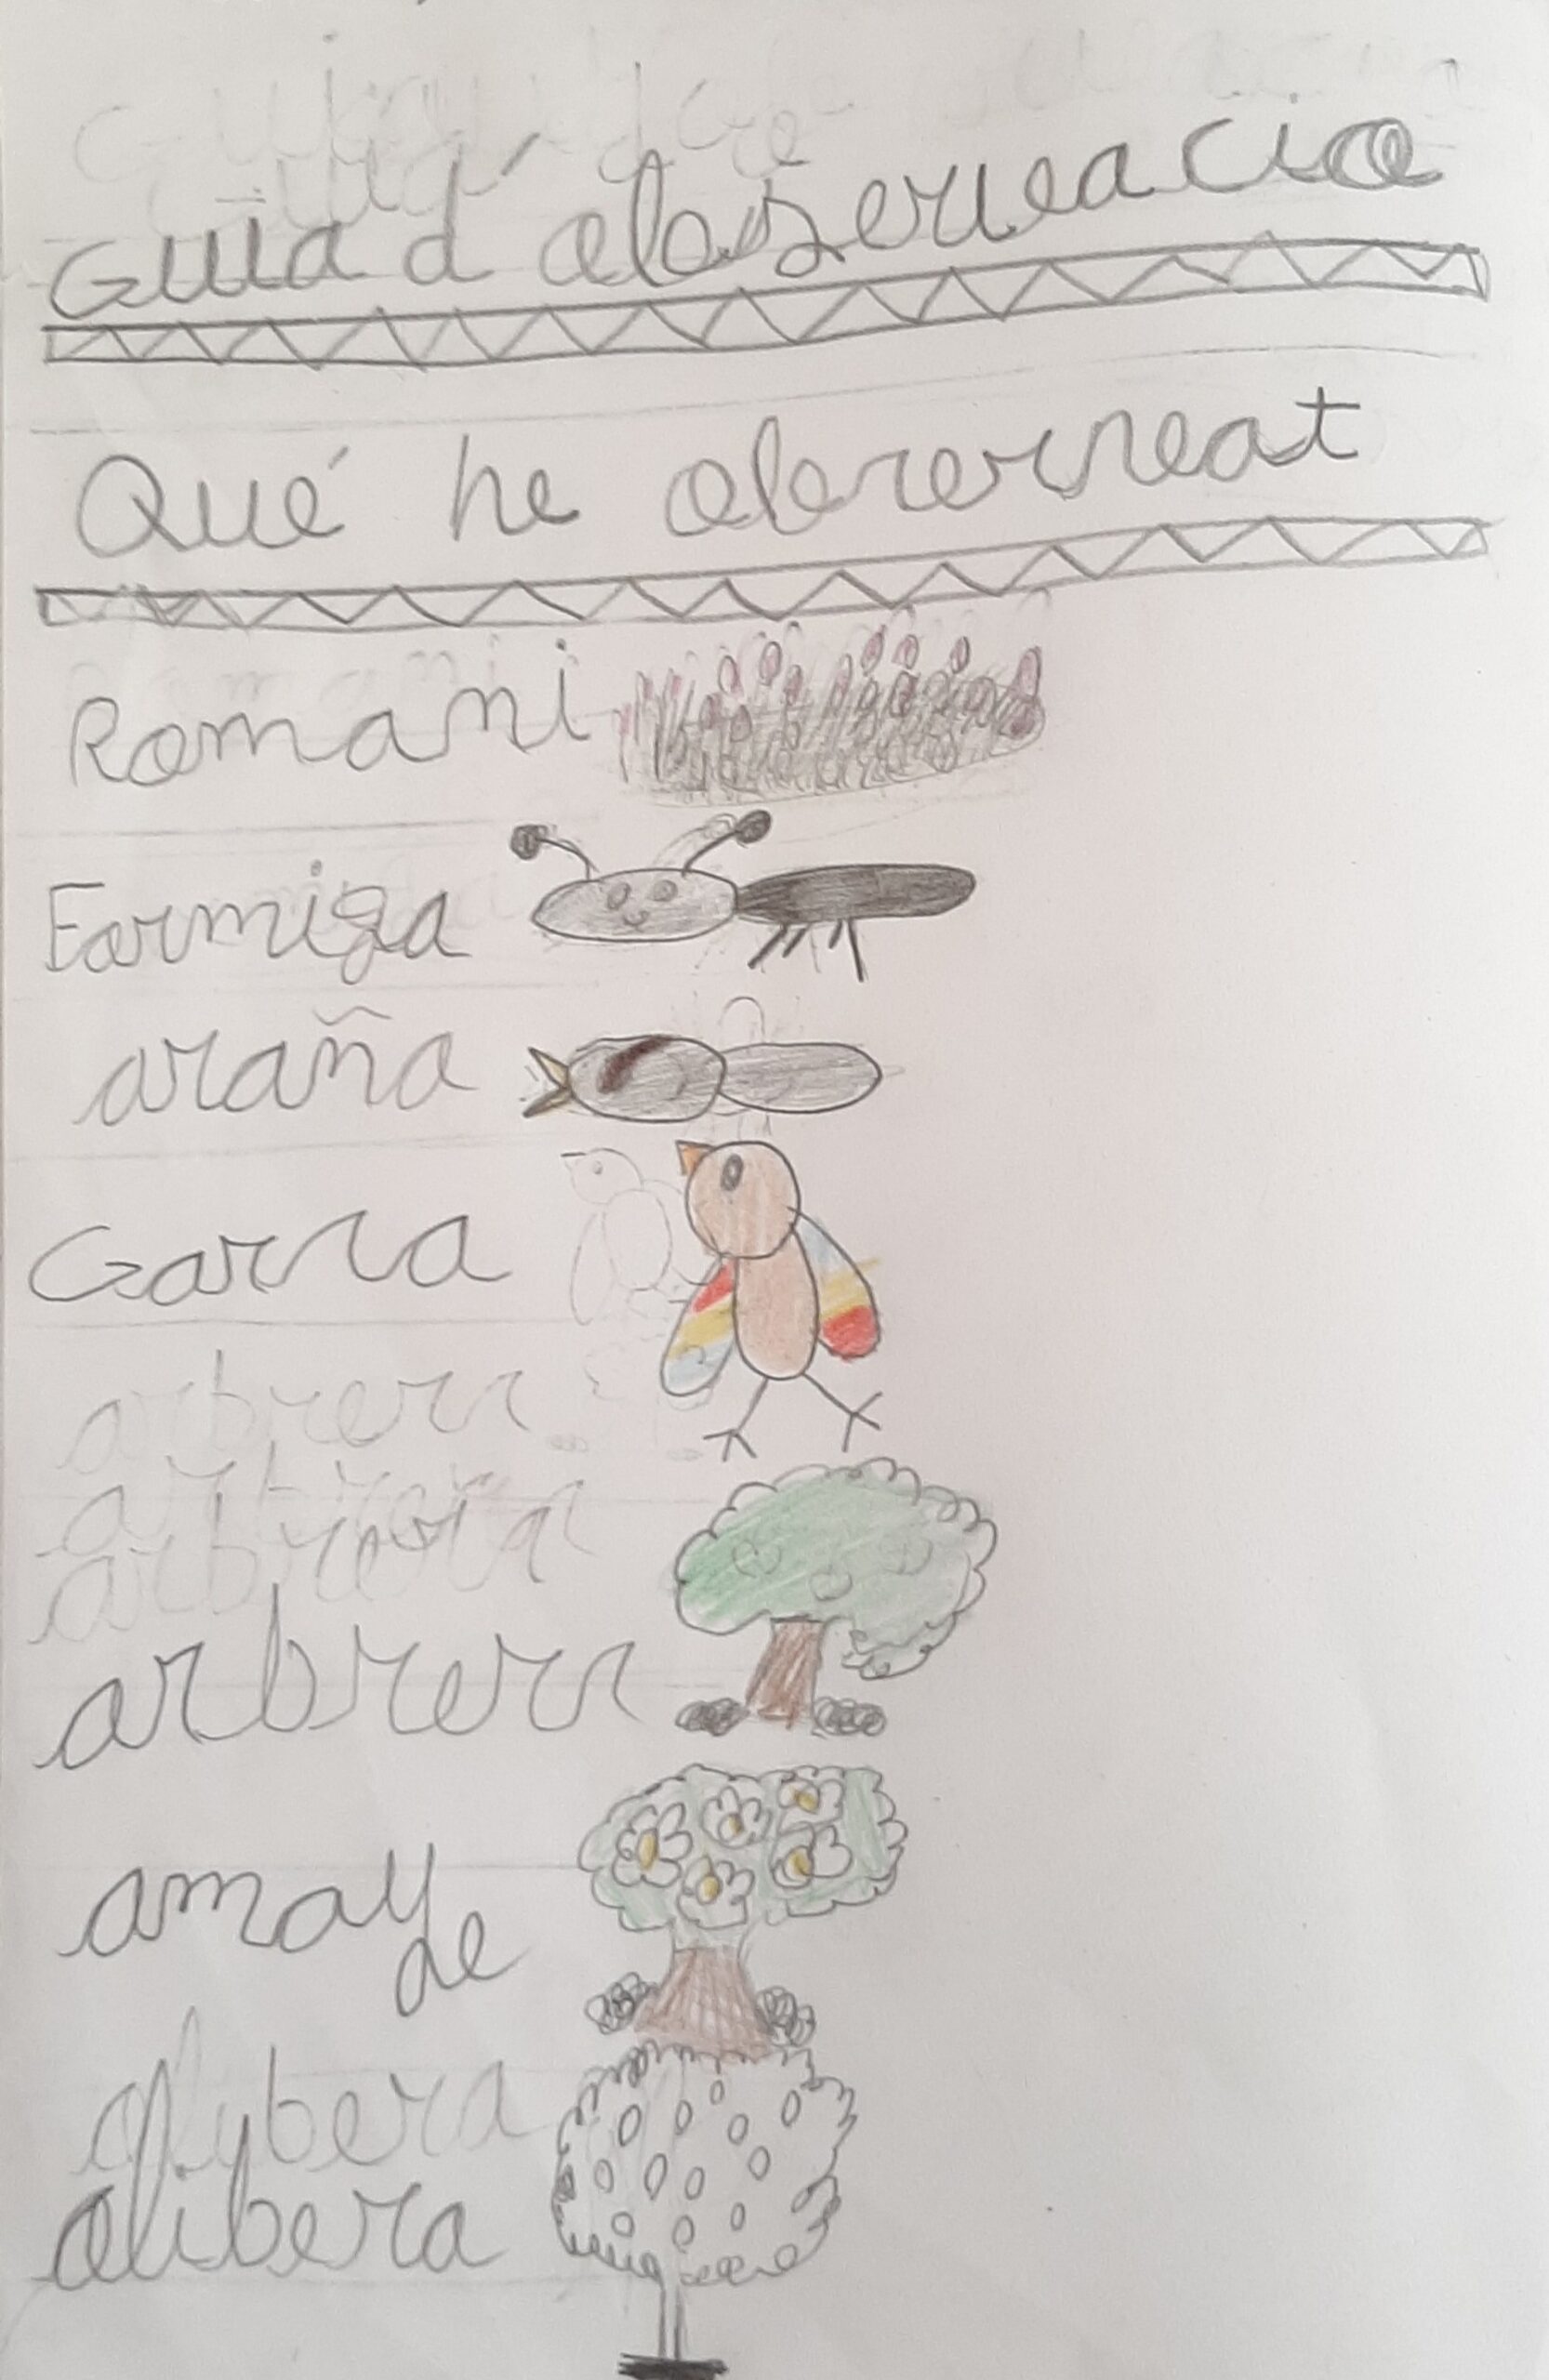 Guia d'observacio
Qué he observat
Romani
Formiga
araña
Garsa
arbres
amay
de
olibera